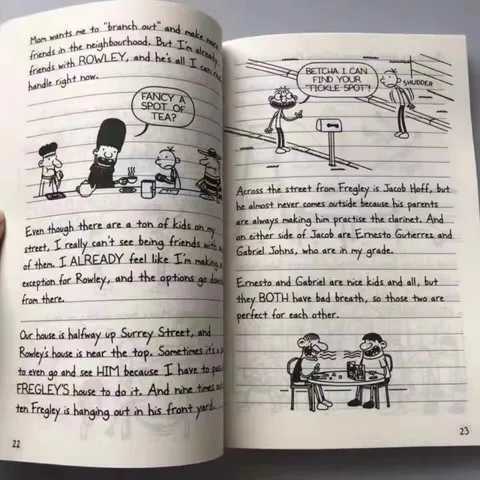 Mom wants me to "branch out" and make more
friends in the neighbourhood. But I'm already
friends with ROWLEY, and he's all I can
handle right now.
FANCY A
SPOT OF
TEA?
Even though there are a ton of kids on my
street, I really can't see being friends with
of them. I ALREADY feel like I'm making
exception for Rowley, and the options go down
from there.
Our house is halfway up Surrey Street, and
Rowley's house is near the top. Sometimes it's
to even go and see HIM because I have to pass
FREGLEY'S house to do it. And nine times out
ten Fregley is hanging out in his front yard.
22
BETCHA I CAN
FIND YOUR
"TICKLE SPOT"!
SHUDDER
Across the street from Fregley is Jacob Hoff, but
he almost never comes outside because his parents
are always making him practise the clarinet. And
on either side of Jacob are Ernesto Gutierrez and
Gabriel Johns, who are in my grade.
Ernesto and Gabriel are nice kids and all, but
they BOTH have bad breath, so those two are
perfect for each other.
23